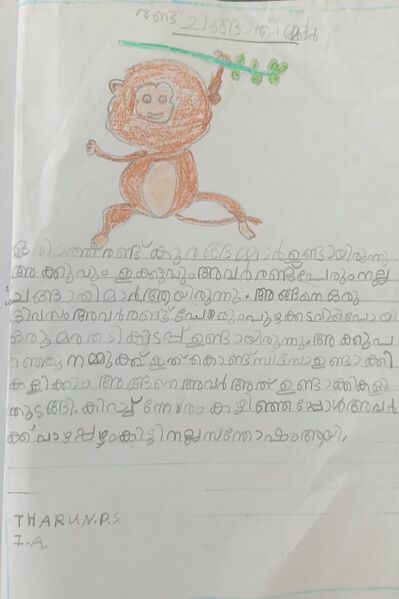 രണ്ട് ചങ്ങാതിമ്മാർ
ഒരിടത്ത് രണ്ട് കുരങ്ങമ്മാർ ഉണ്ടായിരുന്നു
അക്കുവും ഇക്കുവും അവർ രണ്ട് പേരും നല്ല
ചങ്ങാതിമാർ ആയിരുന്നു. അങ്ങനെ ഒരു
ദിവസം അവർ രണ്ട് പേരും പുഴക്കടവിൽ പോയി
ഒരു മരത്തടി കിടപ്പ് ഉണ്ടായിരുന്നു. അക്കു പ
റഞ്ഞു നമ്മുക്ക് ഇത് കൊണ്ട് സിസോ ഉണ്ടാക്കി
കളിക്കാം അങ്ങനെ അവർ അത് ഉണ്ടാക്കി കളി
തുടങ്ങി. കിറച്ച് നേരം കഴിഞ്ഞപ്പോൾ അവർ
ക്ക് പാഴപ്പഴം കിട്ടി നല്ല സന്തോഷം ആയി.
THARUN.P.S
I.A